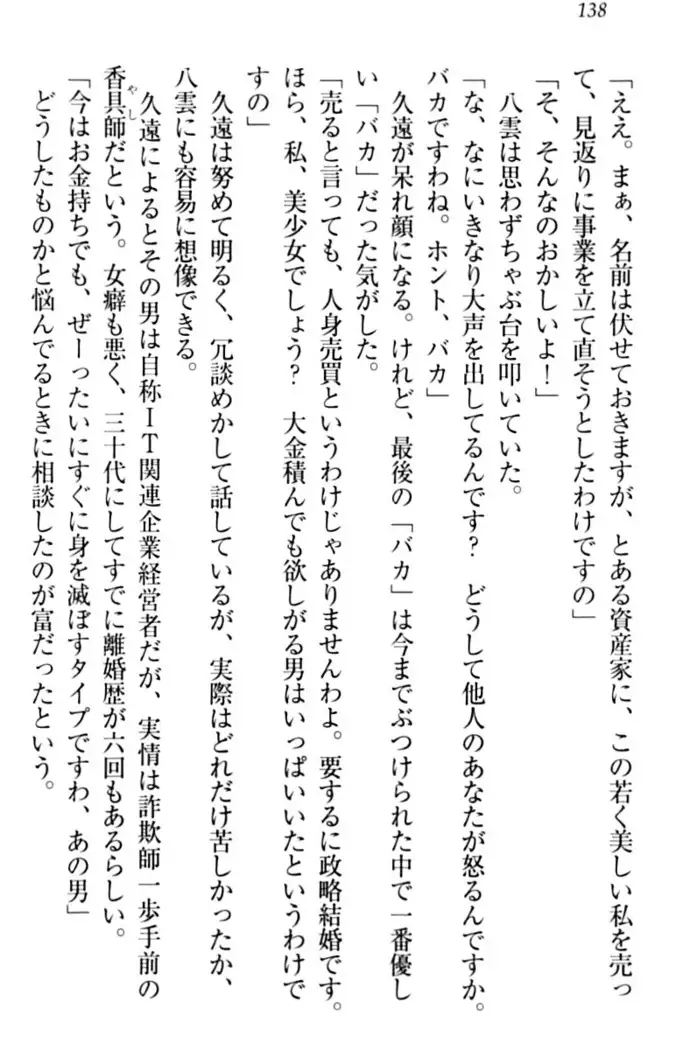 138
「ええ。まぁ、名前は伏せておきますが、とある資産家に、この若く美しい私を売っ
て、見返りに事業を立て直そうとしたわけですの」
「そ、そんなのおかしいよ！」
八雲は思わずちゃぶ台を叩いていた。
「な、なにいきなり大声を出してるんです？　どうして他人のあなたが怒るんですか。
バカですわね。ホント、バカ」
久遠が呆れ顔になる。けれど、最後の「バカ」は今までぶつけられた中で一番優し
い「バカ」だった気がした。
「売ると言っても、人身売買というわけじゃありませんわよ。要するに政略結婚です。
ほら、私、美少女でしょう？　大金積んでも欲しがる男はいっぱいいたというわけで
すの」
久遠は努めて明るく、冗談めかして話しているが、実際はどれだけ苦しかったか、
八雲にも容易に想像できる。
久遠によるとその男は自称ＩＴ関連企業経営者だが、実情は詐欺師一歩手前の
香具師だという。女癖も悪く、三十代にしてすでに離婚歴が六回もあるらしい。
やし
「今はお金持ちでも、ぜーったいにすぐに身を滅ぼすタイプですわ、あの男」
どうしたものかと悩んでるときに相談したのが富だったという。